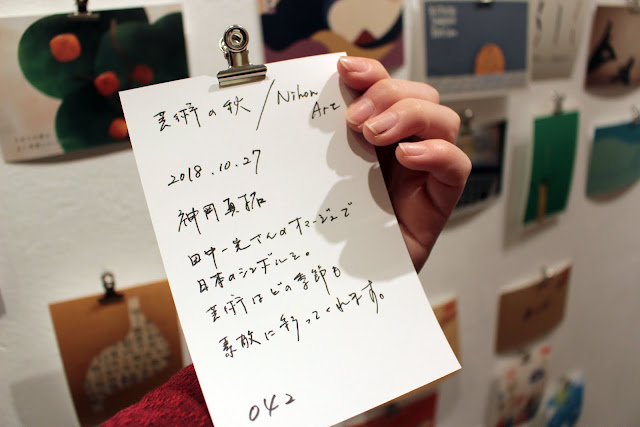 芸術の秋/Nihon
Art
2018.10.27
神岡真拓
田中一光さんのオマージュで
日本のシンボルを。
芸術はどの季節も
素敵に彩ってくれます。
042